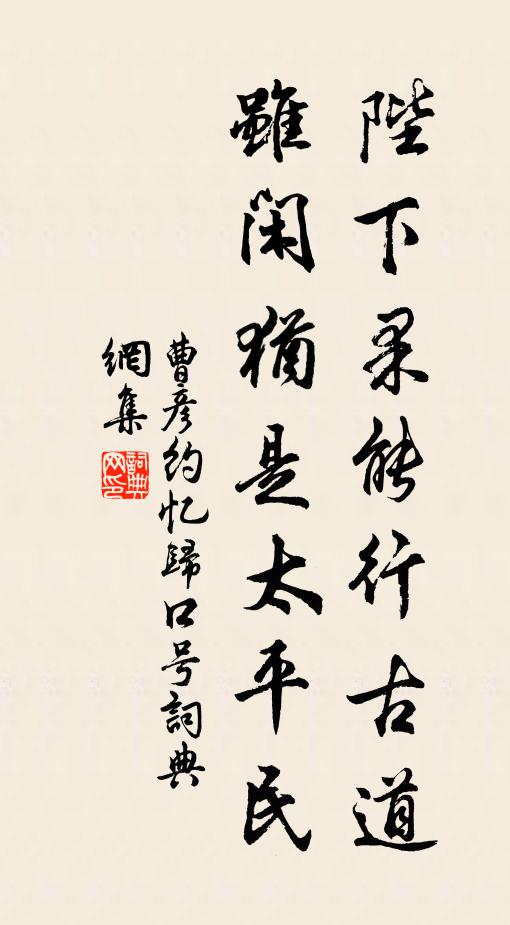 陛下果能行古道
雖閑猶是太平民
曹彦約忆歸口号詞典
網集
詞典網印